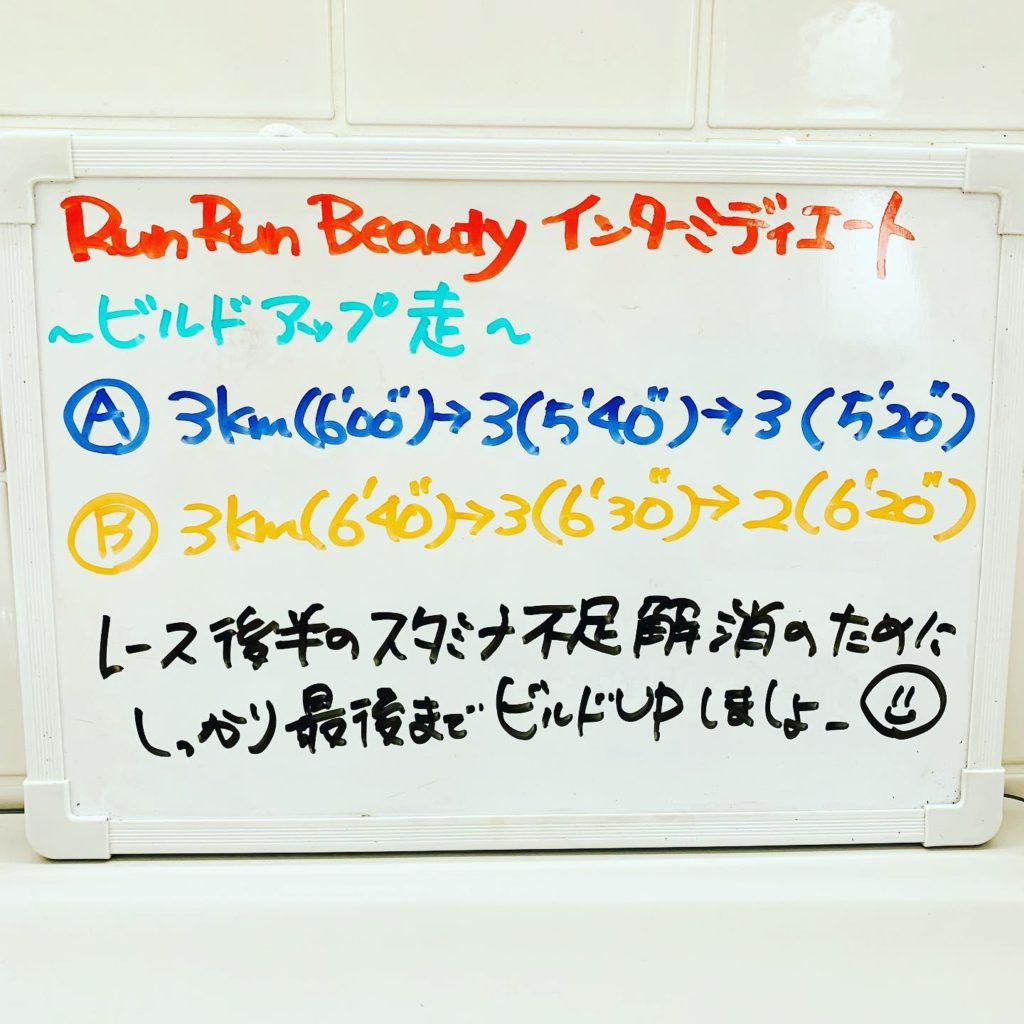 Run Run Beauty インターミディエート
～ビルドアップ走～
Ⓐ 3km(6'00")→3(5'40")→3(5'20")
Ⓑ 3km(6'40")→3(6'30")→2(6'20")
レース後半のスタミナ不足解消のために
しっかり最後までビルドUPしましょー